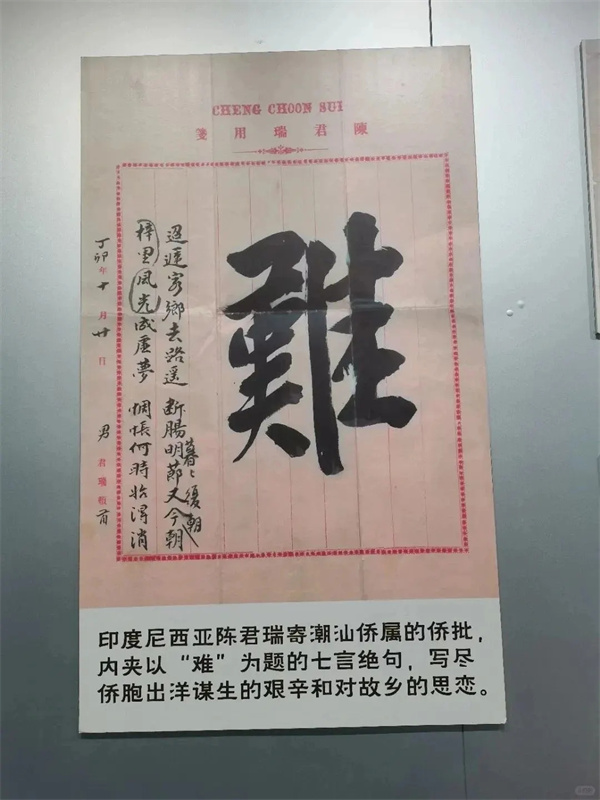 CHENG CHOON SUI
陳君瑞用箋
難
迢遞客鄉去路遥 断腸明節又今朝
暮々復朝
梓里風光成虛夢 惆悵何時始得消
丁卯年十月廿日 男 君瑞
印度尼西亚陈君瑞寄潮汕侨属的侨批，
内夹以“难”为题的七言绝句，写尽
侨胞出洋谋生的艰辛和对故乡的思恋。